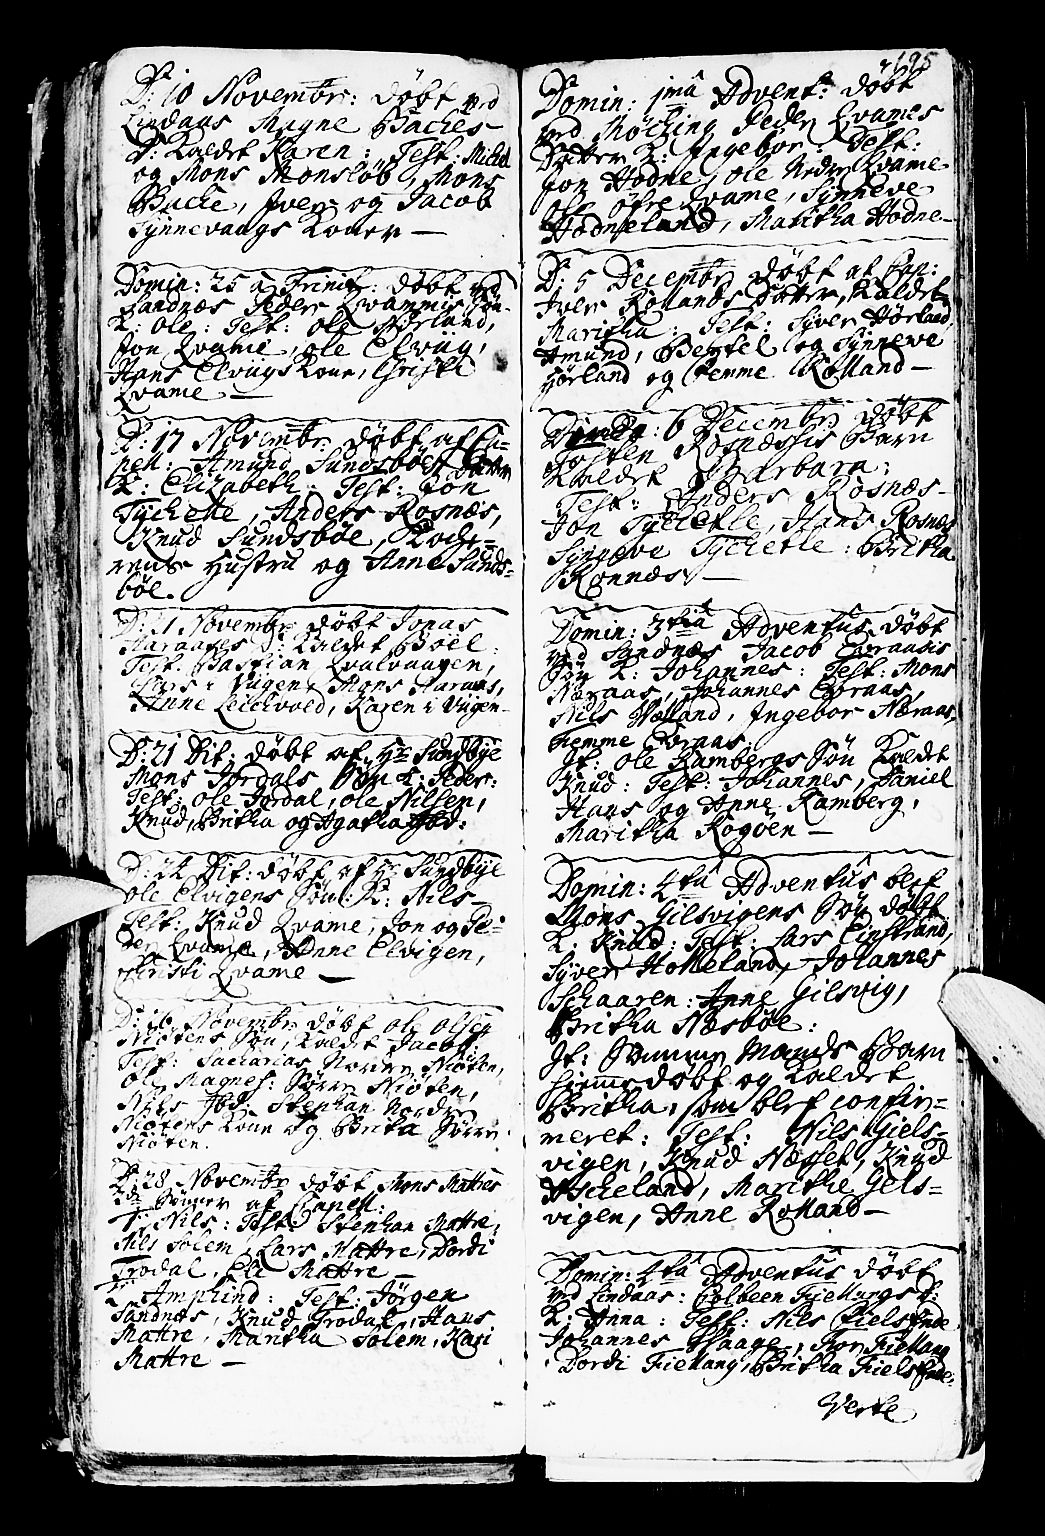 D: 10 Novembr: døbt ved
Lindaas Magne Backes
D: Kaldet Karen: Test: Mickel
og Mons Monsløb, Mons
Backe, Iver og Jacob
Synnevaags Koner —
Domin: 25 a Trinit: døbt ved
Sandnæs Peder Qvammis Søn
K: Ole: Test: Ole Hørland,
Jon Qvame, Ole Elvug,
Hans Elvugs Kone, Christi
Qvame —
D: 17 Novembr døbt af Ca-
pell: Amund Sundsbøes Datter
K: Elizabeth: Test: Jon
Tychetle, Anders Rosnæs,
Knud Sundsbøe,
Hustru og Anne Sunds-
bøe.
D: 21 Novembr døbt Jonas
Haraases D: Kaldet Boel:
Test: Bastian Qvalvaagen,
Lars i Vugen, Mons Haraas,
Anne Leckvold, Karen i Vugen
D: 21 Dit: døbt af Hr Sundbye
Mons Jordals Søn K: Peder:
Test: Ole Jordal, Ole Nilsen,
Knud, Britha og Agatha Ibd:
D: 24 Dit: døbt af Hr Sundbye
Ole Elvigens Søn: K: Nils
Test: Knud Qvame, Jon og Pe-
der Qvame, Anne Elvigen,
Christi Qvame —
D: 26 Novembr døbt Ole Olsen
Niøtens Søn, Kaldet Jacob:
Test: Sackarias Nordre Niøten,
Ole Magnes: Søre Niøten,
Nils Ibd, Stephan Nordre
Niøtens Kone og Brita Søre
Niøten.
D: 28 Novembr døbt Mons Mattres
2de Sønner af Capell:
1: Nils: Test: Stephan Mattre,
Nils Solem, Lars Mattre, Dordi
Trodal, Eli Mattre —
2: Amphind: Test: Jørgen
Sandnæs, Knud Trodal, Hans
Mattre, Maritha Solem, Kari
Mattre —
195
Domin: 1ma Advent: døbt
ved Møcking Peder Qvames
Datter K: Ingebor: Test:
Jon Hodne, Ole Nedre Qvame
Ole øfre Qvame, Synneve
Hodneland, Maritha Hodne—
D: 5 Decembr døbt af Cap:
Iver Rollands Datter, Kaldet
Maritha: Test: Syver Hørland,
Amund, Bertel og Synneve
Hørland og Femme Rolland —
6 Decembr døbt
Tosten Rosnæssis Barn
Kaldet Barbara:
Test: Anders Rosnæs
Jon Tychetle, Hans Rosnæs
Synneve Tychetle: Britha
Ronnæs —
Domin: 3tia Adventus døbt
ved Sandnæs Jacob Evraasis
Søn K: Johannes: Test: Mons
Næraas, Johannes Evraas,
Nils Wolland, Ingebor Næraas,
Femme Evraas
It: Ole Rambergs Søn Kaldet
Knud: Test: Johannes, Daniel
Hans og Anne Ramberg,
Maritha Kogøen —
Domin: 4ta Adventus blef
Mons Gilsvigens Søn døbt
K: Knud: Test: Lars Einstrand,
Syver Holleland, Johannes
Schaaren: Anne Gilsvig,
Britha Næsbøe:
It: Samme Mands Barn
hjemmedøbt og Kaldet
Britha, som blef confir-
meret: Test: Nils Giels-
vigen, Knud Næsset, Knud
Ascheland, Marithe Gels-
vigen, Anne Rolland —
Domin: 4ta Adventus døbt
ved Lindaas: Colbeen Fiellangs D:
K: Anna: Test: Nils Fielsende
Johannes Spaage, Tron Fiellang
Dordi Fiellang, Britha Fielsende:
Verte